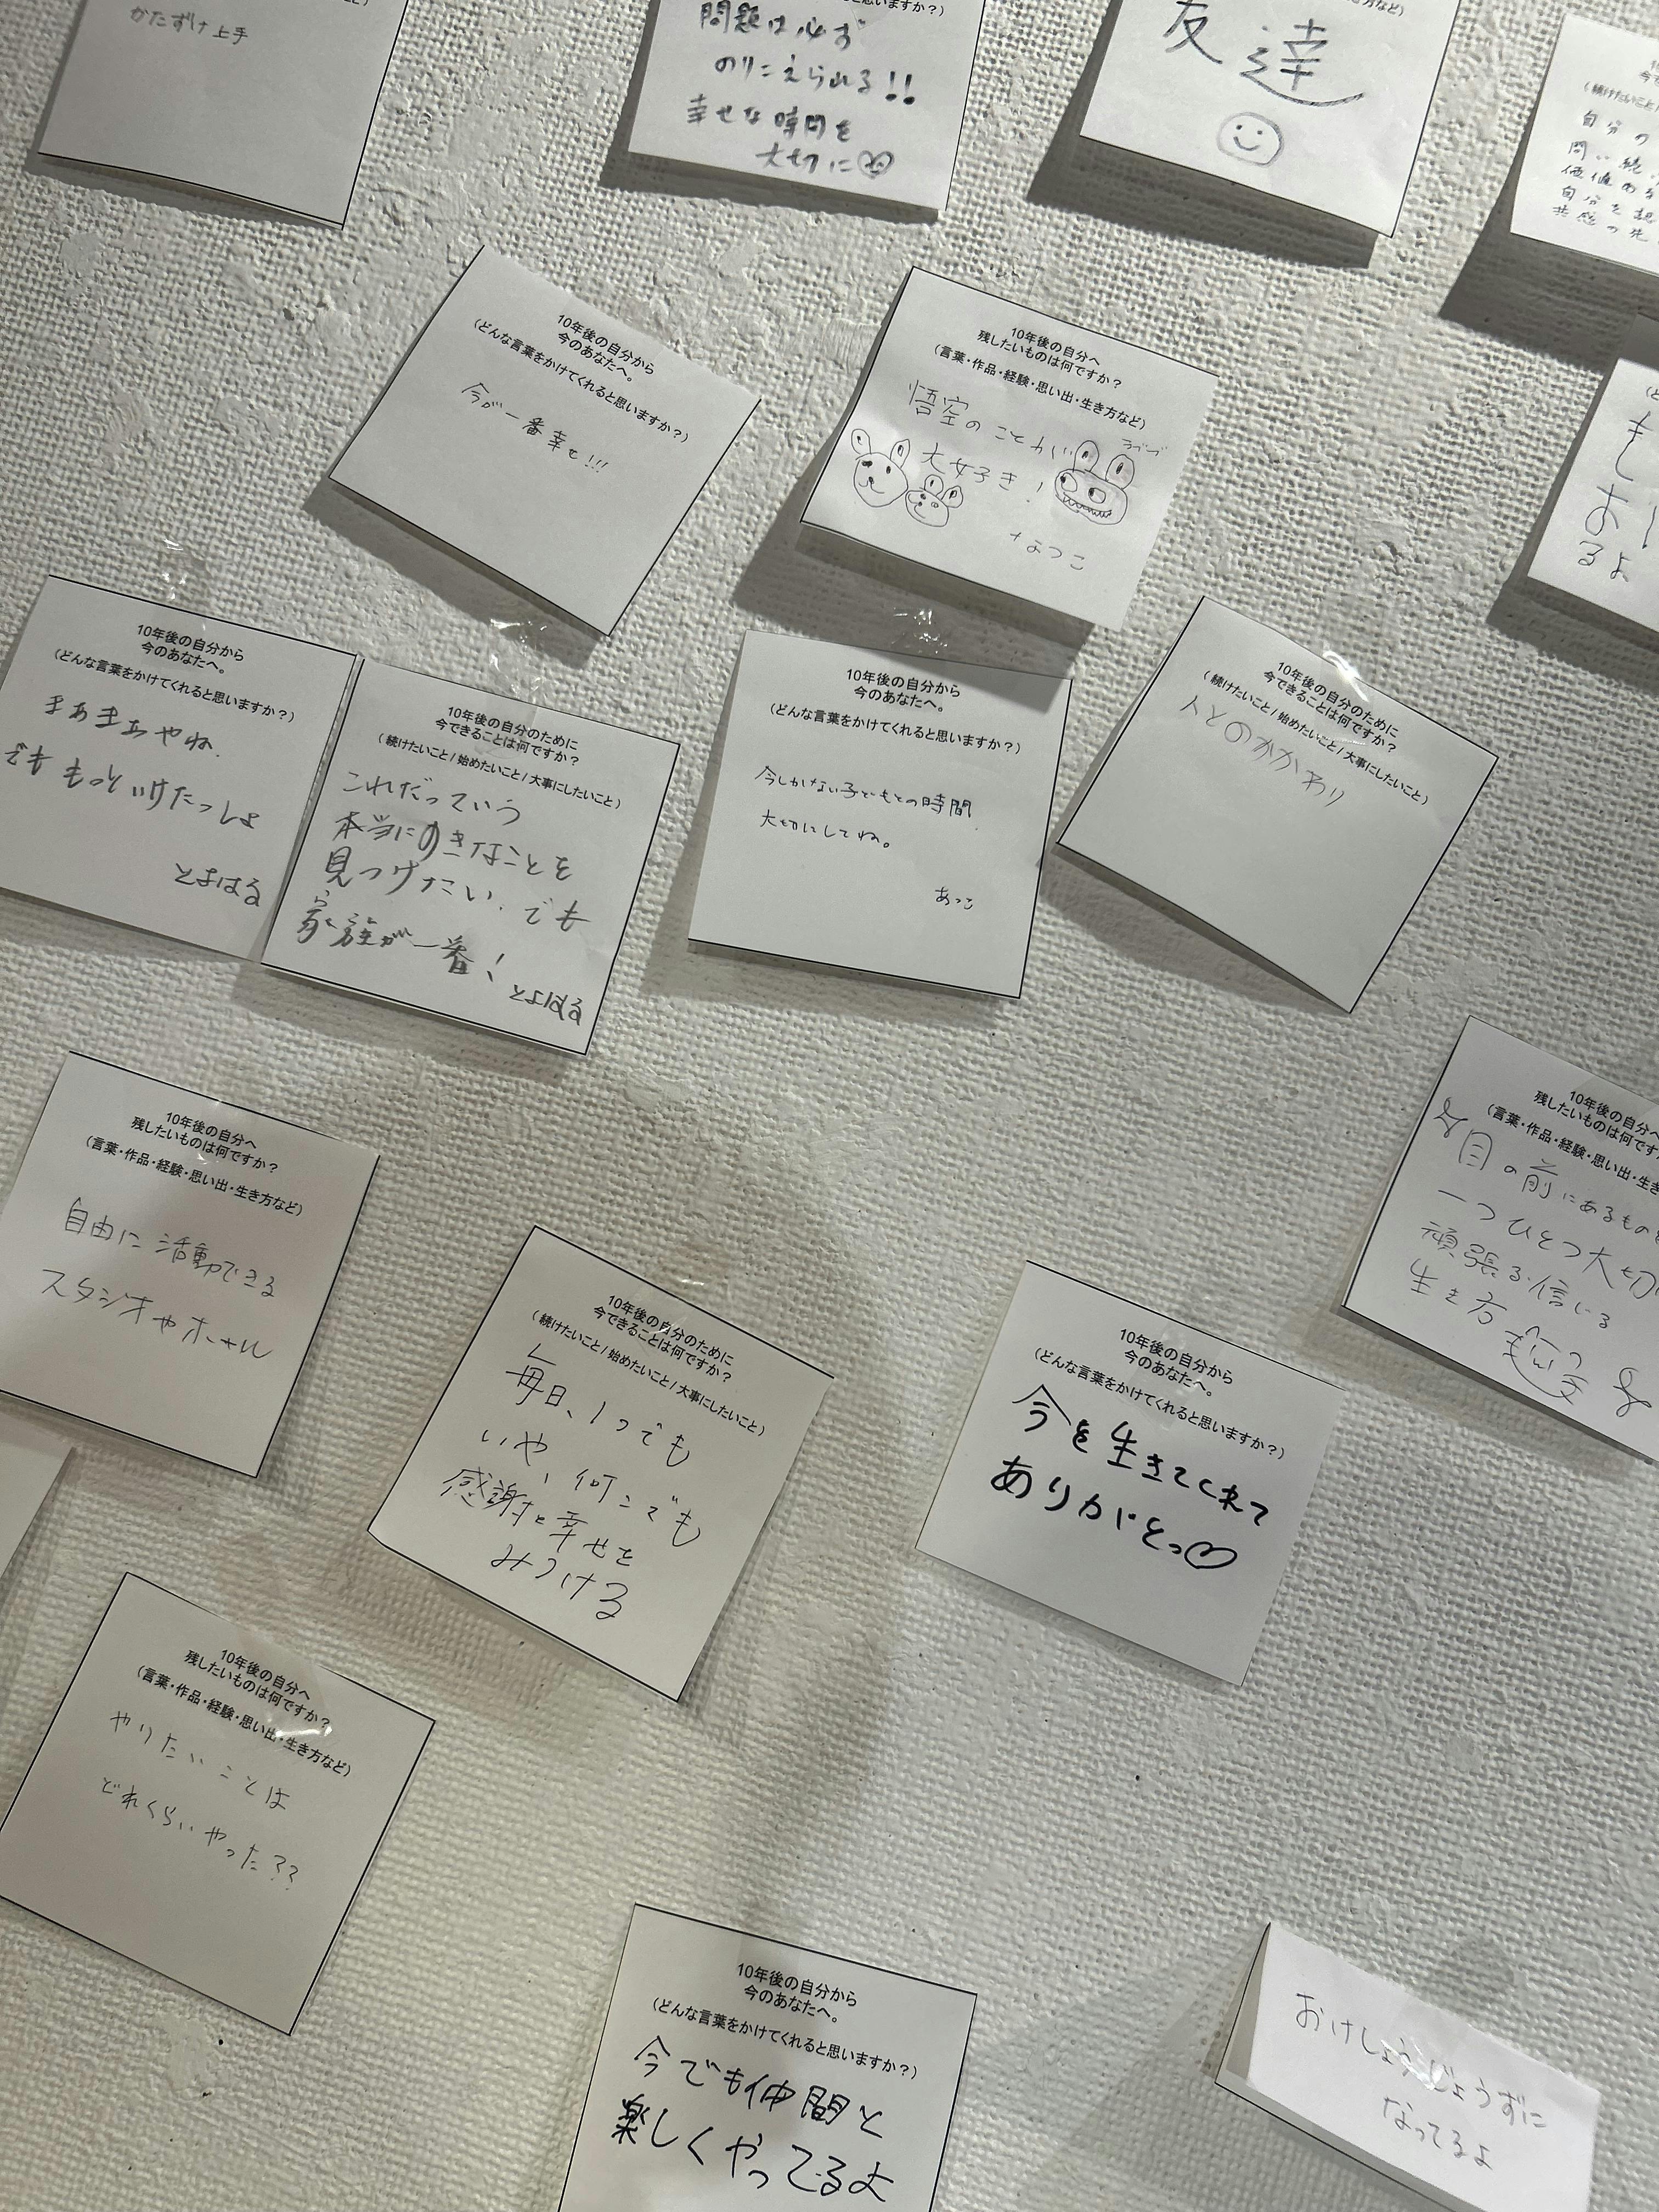 かたずけ上手
問題は必ず
のりこえられる!!
幸せな時間を
大切に
友達
自分の
問い続
価値
自分を認
共感の先
10年後の自分から
今のあなたへ。
(どんな言葉をかけてくれると思いますか?)
今が一番幸せ!!!
10年後の自分へ
残したいものは何ですか?
(言葉・作品・経験・思い出・生き方など)
悟空のことが
大好き!
ラブブ
なつこ
もし
おる
るよ
10年後の自分から
今のあなたへ。
(どんな言葉をかけてくれると思いますか?)
まあまあやね。
でももっといけたっしょ
とよはる
10年後の自分のために
今できることは何ですか?
(続けたいこと/始めたいこと/大事にしたいこと)
これだっていう
本当にすきなことを
見つけたい。でも
家族が一番!
とよはる
10年後の自分から
今のあなたへ。
(どんな言葉をかけてくれると思いますか?)
今しかない子どもとの時間
大切にしてね。
あつこ
10年後の自分のために
今できることは何ですか?
(続けたいこと/始めたいこと/大事にしたいこと)
人とのかかわり
10年後の自分へ
残したいものは何ですか?
(言葉・作品・経験・思い出・生き方など)
自由に活動できる
スタジオやホール
10年後の自分のために
今できることは何ですか?
(続けたいこと/始めたいこと/大事にしたいこと)
毎日、1つでも
いや、何こでも
感謝と幸せを
みつける
10年後の自分から
今のあなたへ。
(どんな言葉をかけてくれると思いますか?)
今を生きてくれて
ありがとっ♡
10年後の自分へ
残したいものは何ですか?
(言葉・作品・経験・思い出・生き
目の前にあるもの
一つひとつ大切
頑張る・信じる
生き方
10年後の自分へ
残したいものは何ですか?
(言葉・作品・経験・思い出・生き方など)
やりたいことは
どれくらいやった??
10年後の自分から
今のあなたへ。
(どんな言葉をかけてくれると思いますか?)
今でも仲間と
楽しくやってるよ
おけしょうじょうずに
なってるよ